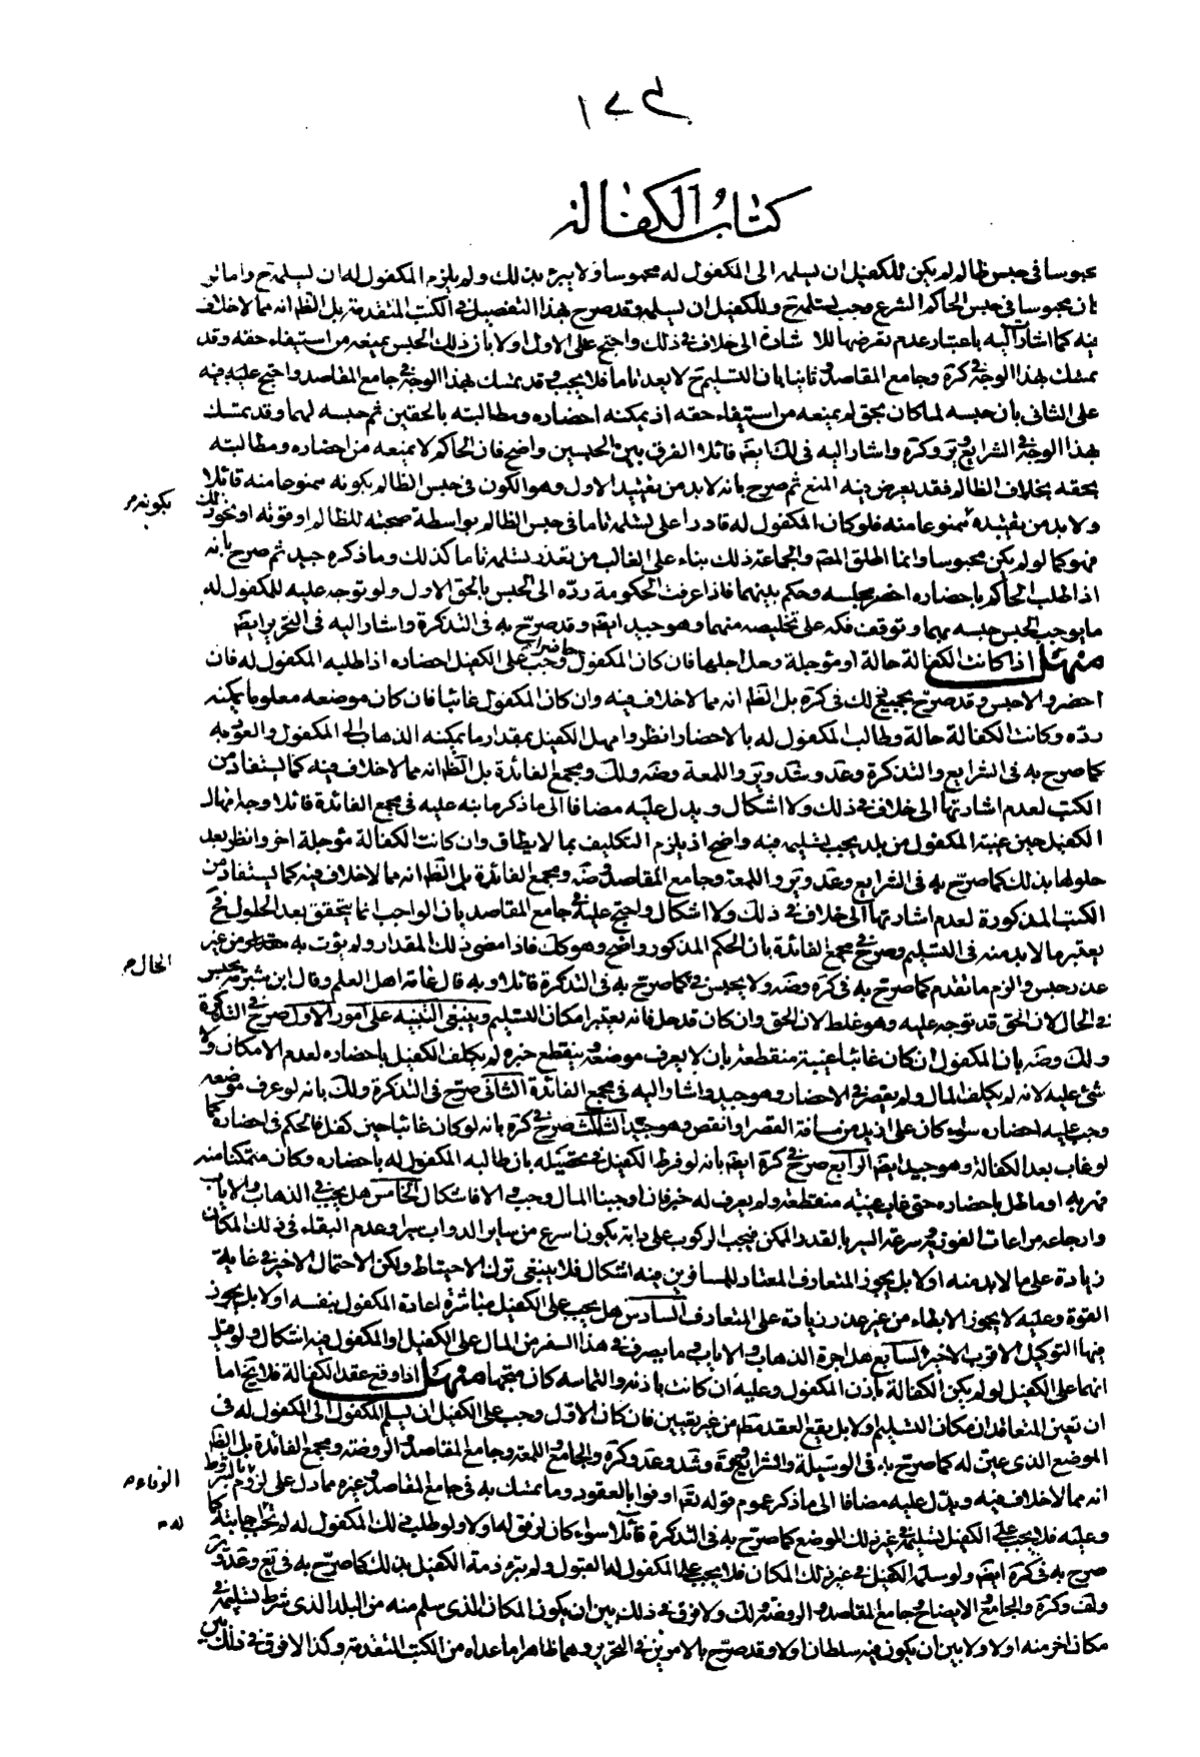 ١٧٤
كتاب الكفالة
محبوسا في حبس ظالم لم يكن للكفيل ان يسلمه الى المكفول له محبوسا ولا يبرء بذلك ولم يلزم المكفول له ان يتسلمه ح واما لو
كان محبوسا في حبس الحاكم الشرع وجب تسلمه ح وللكفيل ان يسلمه وقد صرح بهذا التفصيل في الكتب المتقدمة بل الظ انه مما لا خلاف
فيه كما اشار اليه باعتبار عدم تعرضها للاشارة الى خلاف في ذلك واحتج على الاول اولا بان ذلك الحبس يمنعه من استيفاء حقه وقد
تمسك بهذا الوجه في كرة وجامع المقاصد وثانيا بان التسليم ح لا يعد تاما فلا يجب وقد تمسك بهذا الوجه في جامع المقاصد واحتج عليه فيه
على الثاني بان حبسه لما كان بحق لم يمنعه من استيفاء حقه اذ يمكنه احضاره ومطالبته بالحقين ثم حبسه لهما وقد تمسك
بهذا الوجه في الشرايع وير وكرة واشار اليه في لك ايضا قائلا الفرق بين الحبسين واضح فان الحاكم لا يمنعه من احضاره ومطالبته
بحقه بخلاف الظالم فقد يعرض فيه المنع ثم صرح بانه لا بد من تقييد الاول وهو الكون في حبس الظالم بكونه ممنوعا منه قائلا
ولا بد من تقييده بكونه ممنوعا منه فلو كان المكفول له قادرا على تسلمه تاما في حبس الظالم بواسطة صحبته للظالم او قوته او نحو ذلك
فهو كما لو لم يكن محبوسا وانما اطلق المص والجماعة ذلك بناء على الغالب من تعذر تسلمه تاما كذلك وما ذكره جيد ثم صرح بانه
اذا طلب الحاكم باحضاره احضر مجلسه وحكم بينهما فاذا عرفت الحكومة ردّه الى الحبس بالحق الاول ولو توجه عليه للمكفول له
ما يوجب الحبس حبسه بهما وتوقف فكه على تخليصه منهما وهو جيد ايضا وقد صرّح به في التذكرة واشار اليه في التحرير ايضا
منهل اذا كانت الكفالة حالة او مؤجلة وحل اجلها فان كان المكفول حاضرا وجب على الكفيل احضاره اذا طلبه المكفول له فان
احضره والا حبس وقد صرح بجميع ذلك في كرة بل الظ انه مما لا خلاف فيه وان كان المكفول غائبا فان كان موضعه معلوما يمكنه
ردّه وكانت الكفالة حالة وطالب المكفول له بالاحضار انظر وامهل الكفيل بمقدار ما يمكنه الذهاب الى المكفول والعود به
كما صرح به في الشرايع والتذكرة وعد وشد وير واللمعة وضه ولك ومجمع الفائدة بل الظ انه مما لا خلاف فيه كما يستفاد من
الكتب لعدم اشارتها الى خلاف في ذلك ولا اشكال ويدل عليه مضافا الى ما ذكر ما نبه عليه في مجمع الفائدة قائلا وجه امهال
الكفيل حين غيبة المكفول من بلد يجب تسليمه فيه واضح اذ يلزم التكليف بما لا يطاق وان كانت الكفالة مؤجلة اخر وانظر بعد
حلولها بذلك كما صرّح به في الشرايع وعد وير واللمعة وجامع المقاصد وضه ومجمع الفائدة بل الظ انه مما لا خلاف فيه كما يستفاد من
الكتب المذكورة لعدم اشارتها الى خلاف في ذلك ولا اشكال واحتج عليه في جامع المقاصد بان الواجب انما يتحقق بعد الحلول فح
يعتبر ما لا بد منه في التسليم وصرح في مجمع الفائدة بان الحكم المذكور واضح وهو كك فاذا مضى ذلك المقدار ولم يؤت به من غير
عذر حبس والزم ما تقدم كما صرح به في كرة وضه ولا يحبس في الحال كما صرّح به في التذكرة قائلا وبه قال عامة اهل العلم وقال ابن شبرمة يحبس
في الحال لان الحق قد توجه عليه وهو غلط لان الحق وان كان قد حل فانه يعتبر امكان التسليم وينبغي التنبيه على امور الاول صرح في التذكرة
ولك وضه بان المكفول ان كان غائبا غيبة منقطعة بان لا يعرف موضعه وينقطع خبره لم يكلف الكفيل باحضاره لعدم الامكان ولا
شئ عليه لانه لم يكلف المال ولم يقصر في الاحضار وهو جيد واشار اليه في مجمع الفائدة الثاني صرّح في التذكرة ولك بانه لو عرف موضعه
وجب عليه احضاره سواء كان على ازيد من مسافة القصر او انقص وهو جيد الثالث صرح في كرة بانه لو كان غائبا حين كفل فالحكم في احضاره كما
لو غاب بعد الكفالة وهو جيد ايضا الرابع صرح في كرة ايضا بانه لو فرط الكفيل في تحصيله بان طالبه المكفول له باحضاره وكان متمكنا منه
فهرّبه او ماطل باحضاره حتى غاب غيبة منقطعة ولم يعرف له خبر فان اوجبنا المال وجب والا فاشكال الخامس هل يجب في الذهاب والاياب
وارجاعه مراعات الفورية وسرعة السير بالقدر الممكن فيجب الركوب على دابة يكون اسرع من ساير الدواب سيرا وعدم البقاء في ذلك المكان
زيادة على ما لا بد منه او لا بل يجوز المتعارف المعتاد للمسافرين فيه اشكال فلا ينبغي ترك الاحتياط ولكن الاحتمال الاخير في غاية
القوة وعليه لا يجوز الابطاء من غير عذر زيادة على المتعارف السادس هل يجب على الكفيل مباشرة اعادة المكفول بنفسه او لا بل يجوز
فيها التوكيل الاقرب الاخير السابع هل اجرة الذهاب والاياب وما يصرف في هذا السفر من المال على الكفيل او المكفول فيه اشكال ولو قيل
انهما على الكفيل لو لم يكن الكفالة باذن المكفول وعليه ان كانت باذنه والتماسه كان متجها منهل اذا وقع عقد الكفالة فلا يخ اما
ان يعين المتعاقدان مكان التسليم او لا بل يقع العقد مطلقا من غير تعيين فان كان الاوّل وجب على الكفيل ان يسلم المكفول الى المكفول له في
الموضع الذي عين له كما صرّح به في الوسيلة والشرايع وشد وعد وكرة والجامع واللمعة وجامع المقاصد والروضة ومجمع الفائدة بل الظ
انه مما لا خلاف فيه ويدّل عليه مضافا الى ما ذكر عموم قوله تعالى اوفوا بالعقود وما تمسك به في جامع المقاصد وغيره مما دل على لزوم الوفاء بالشرط
وعليه فلا يجب على الكفيل تسليمه في غير ذلك الموضع كما صرّح به في التذكرة قائلا سواء كان ارفق له او لا ولو طلب ذلك المكفول له لم تجب اجابته كما
صرح به في كرة ايضا ولو سلمه الكفيل في غير ذلك المكان فلا يجب على المكفول له القبول ولم يبرء ذمة الكفيل بذلك كما صرّح به في يع وعد وير
ولف وكرة والجامع والايضاح وجامع المقاصد والروضة ولك ولا فرق في ذلك بين ان يكون المكان الذي سلم منه من البلد الذي شرط تسليمه في
مكان اخر منه او لا ولا بين ان يكون فيه سلطان او لا وقد صرّح بالامرين في التحرير وهما ظاهر ما عداه من الكتب المتقدمة وكذا لا فرق في ذلك بين
بكونه
الحال
الوفاء
له